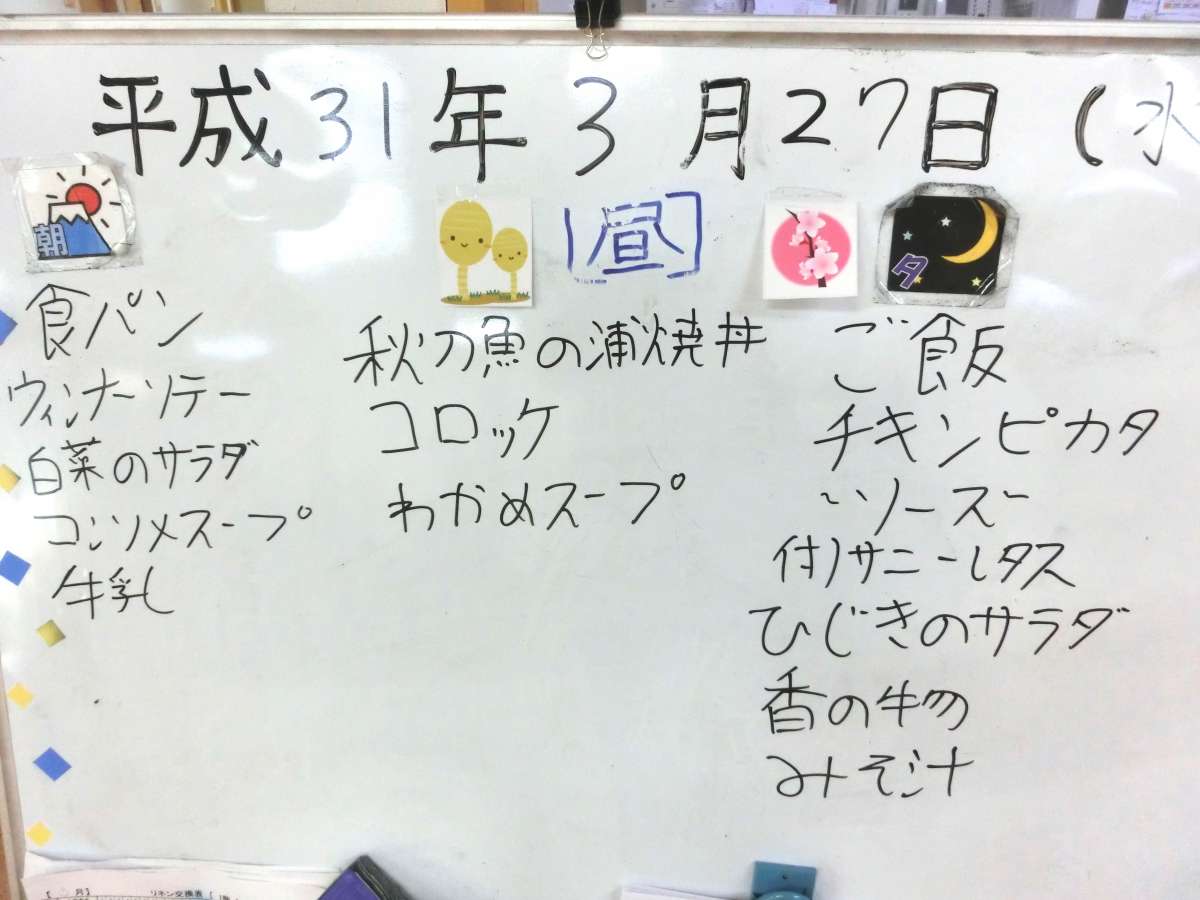 平成31年3月27日(水
朝
食パン
ウィンナーソテー
白菜のサラダ
コンソメスープ
牛乳
昼
秋刀魚の浦焼丼
コロッケ
わかめスープ
夕
ご飯
チキンピカタ
~ソース~
付)サニーレタス
ひじきのサラダ
香の物
みそ汁
【 月】 リネン交換表